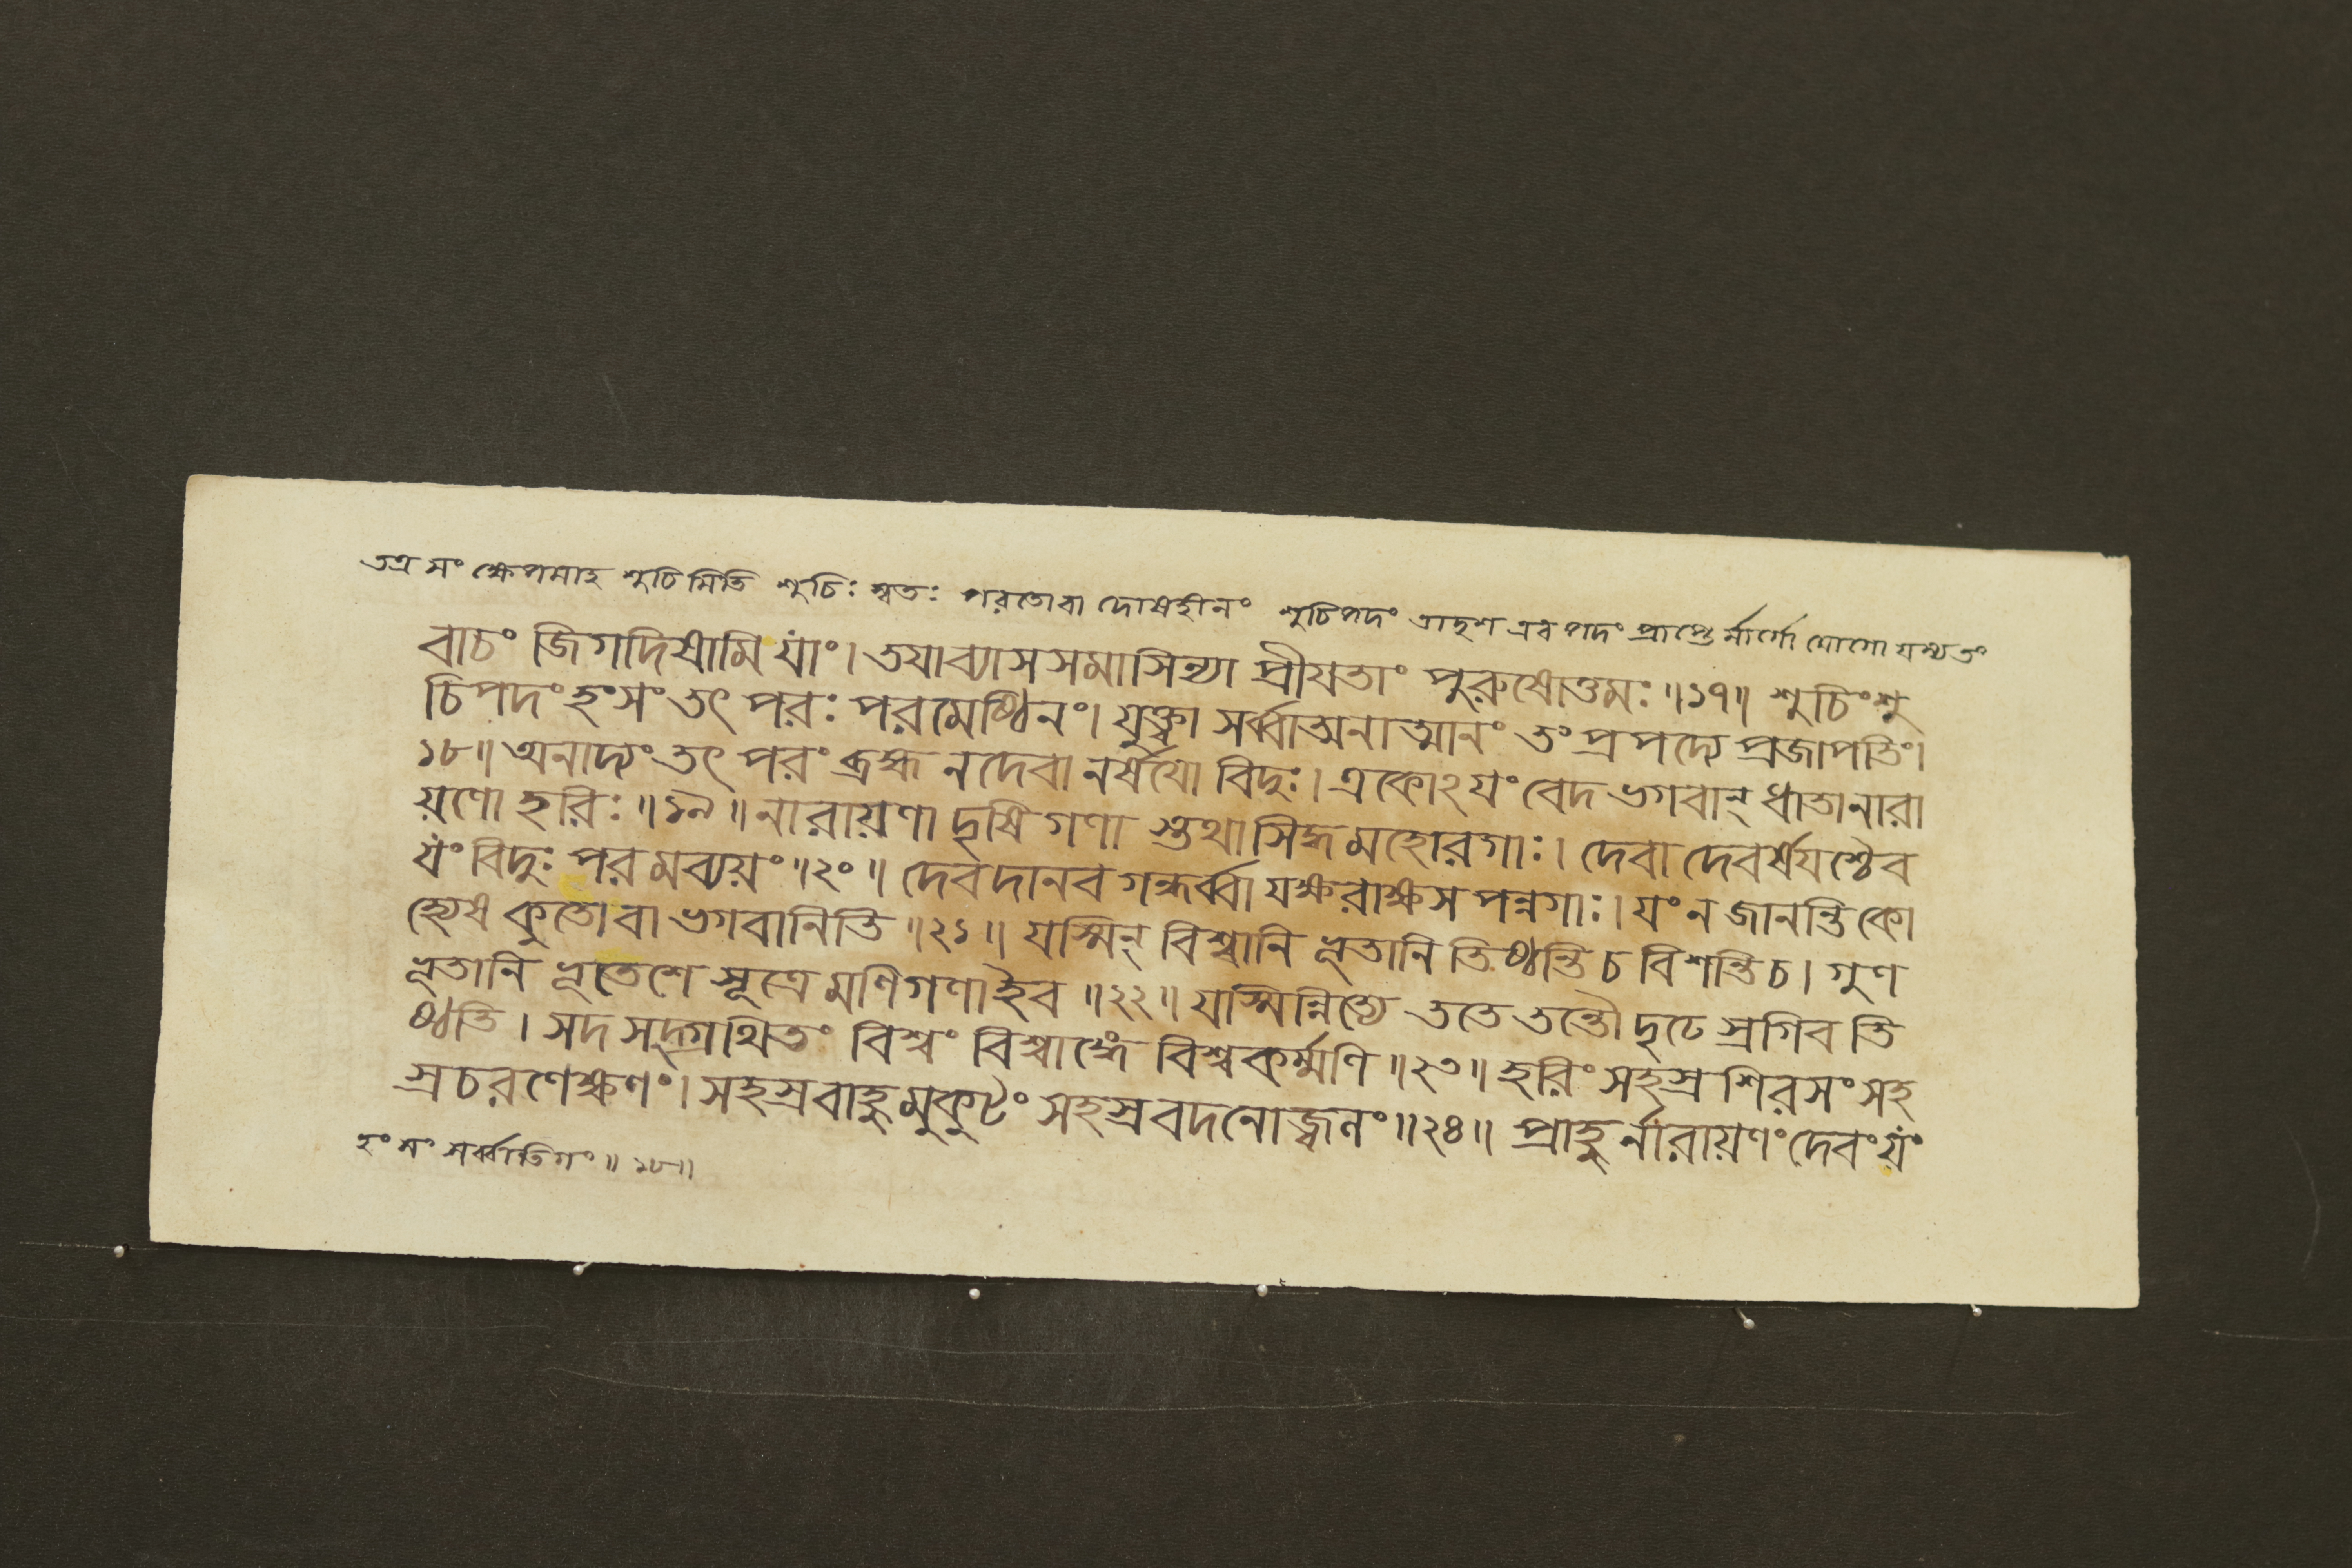 তত্র সংক্ষেপমাহ শুচিমিতি শুচিঃ স্বতঃ পরতোবা দোষহীনং শুচিপদং তাদৃশ এব পদং প্রাপ্তের্মার্গো যোগো যস্য তং
বাচং জিগদিষামি যাং। তযাব্যাসসমাসিন্যা প্রীযতাং পুরুষোত্তমঃ॥১৭॥ শুচিংশু
চিপদং হংসং তৎ পরঃ পরমেষ্ঠিনং। যুক্ত্বা সর্ব্বাত্মনাত্মানং তং প্রপদ্যে প্রজাপতিং।
১৮॥ অনাদ্যং তৎ পরং ব্রহ্ম নদেবা নর্ষযো বিদুঃ। একোঽযং বেদ ভগবান্ ধাতানারা
য়ণো হরিঃ॥১৯॥ নারায়ণা দৃষিগণা স্তথাসিদ্ধমহোরগাঃ। দেবা দেবর্ষযশ্চৈব
যং বিদুঃ পরমব্যয়ং॥২০॥ দেবদানব গন্ধর্ব্বা যক্ষরাক্ষস পন্নগাঃ। যং ন জানন্তি কো
হ্যেষ কুতো বা ভগবানিতি॥২১॥ যস্মিন্ বিশ্বানি ভূতানি তিষ্ঠন্তি চ বিশন্তি চ। গুণ
ভূতানি ভূতেশে সূত্রে মণিগণাইব॥২২॥ যস্মিন্নিত্যে ততে তন্তৌ দৃঢে স্রগিব তি
ষ্ঠতি। সদসদ্গ্রথিতং বিশ্বং বিশ্বাঙ্গে বিশ্বকর্ম্মণি॥২৩॥ হরিং সহস্রশিরসং সহ
স্রচরণেক্ষণং। সহস্রবাহুমুকুটং সহস্রবদনোজ্জ্বলং॥২৪॥ প্রাহুর্নারায়ণং দেবং যং
হংসং সর্ব্বাতিগং॥১৮॥